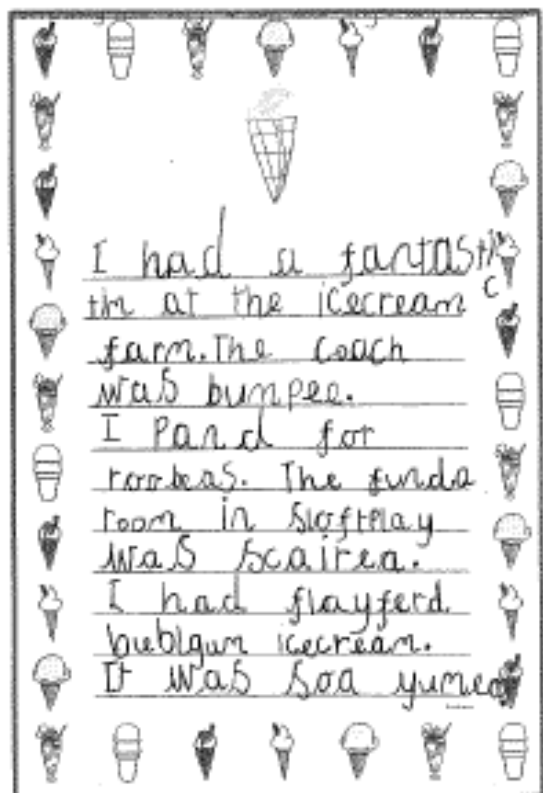 I had a fantastic
tm at the icecream
farm. The coach
was bumpee.
I Pand for
roobeas. The funda
room in Sloftplay
was scairea.
I had flayferd
bublgum icecream.
It was soa yumea